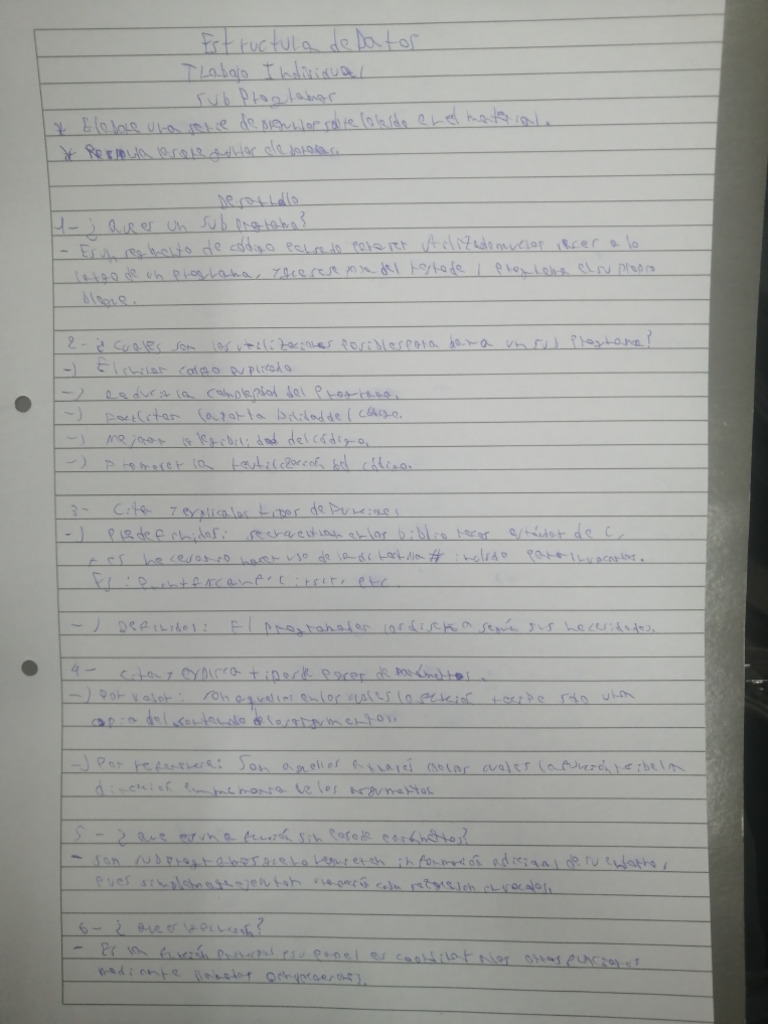 Estructura de Datos
Trabajo Individual
Sub Programas
* Elabore una serie de preguntas sobre lo leído en el material.
* 
Desarrollo
1- ¿Que es un sub programa?
- Es un segmento de código para ser utilizado veces a lo
largo de un programa, del resto del programa en su propio
bloque.
2- ¿Cuales son las utilizaciones posibles para un sub programa?
-) Eliminar código duplicado
-) Reducir la complejidad del programa.
-) Facilitar la portabilidad del código.
-) Mejorar la legibilidad del código.
-) Promover la reutilización del código.
3- Cita y explica los tipos de funciones
-) Predefinidas: se encuentran en las bibliotecas estándar de C,
es necesario hacer uso de la directiva # include para invocarlas.
Ej: printf, scanf, etc.
-) Definidas: El programador las diseña según sus necesidades.
4- Cita y explica tipos de pasos de parámetros.
-) Por valor: son aquellos en los cuales la función recibe solo una
copia del contenido de los argumentos.
-) Por referencia: Son aquellos a través de los cuales la función recibe la
dirección en memoria de los argumentos
5- ¿Que es una función sin paso de parámetros?
- Son subprogramas que no requieren información adicional de su entorno,
pues simplemente ejecutan cada vez que son invocados.
6- ¿Que es función?
- Es la función principal su papel es coordinar a las otras funciones
mediante llamadas